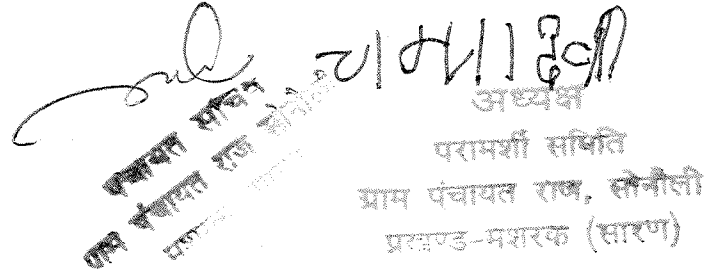 चम्पा देवी
पंचायत सचिव
ग्राम पंचायत राज सोनौली
अध्यक्ष
परामर्शी समिति
ग्राम पंचायत राज, सोनौली
प्रखण्ड-मशरक (सारण)